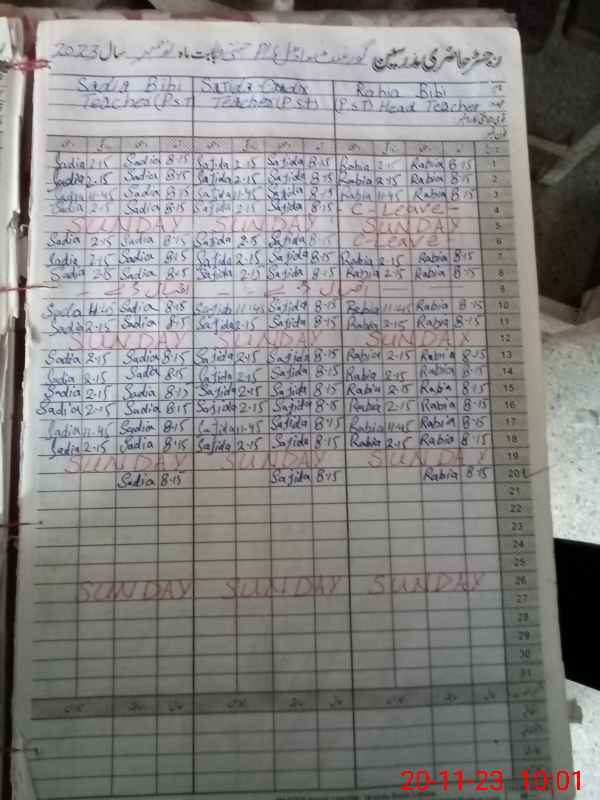 رجسٹر حاضری مدرسین گورنمنٹ پرائمری بابت ماہ نومبر سال 2023
Sadia Bibi Sajida Rabia Bibi
Teacher (P.s.T) Teacher (P.s.T) (P.s.T) Head Teacher
Sadia 2.15 Sadia 8.15 Sajida 2.15 Sajida 8.15 Rabia 2.15 Rabia 8.15 1
Sadia 2.15 Sadia 8.15 Sajida 2.15 Sajida 8.15 Rabia 2.15 Rabia 8.15 2
Sadia 11.45 Sadia 8.15 Sajida 11.45 Sajida 8.15 Rabia 11.45 Rabia 8.15 3
Sadia 2.15 Sadia 8.15 Sajida 2.15 Sajida 8.15 - C-Leave - 4
SUNDAY SUNDAY SUNDAY 5
Sadia 2.15 Sadia 8.15 Sajida 2.15 Sajida 8.15 - C-Leave - 6
Sadia 2.15 Sadia 8.15 Sajida 2.15 Sajida 8.15 Rabia 2.15 Rabia 8.15 7
Sadia 2.15 Sadia 8.15 Sajida 2.15 Sajida 8.15 Rabia 2.15 Rabia 8.15 8
اقبال ڈے اقبال ڈے 9
Sadia 11.45 Sadia 8.15 Sajida 11.45 Sajida 8.15 Rabia 11.45 Rabia 8.15 10
Sadia 2.15 Sadia 8.15 Sajida 2.15 Sajida 8.15 Rabia 2.15 Rabia 8.15 11
SUNDAY SUNDAY SUNDAY 12
Sadia 2.15 Sadia 8.15 Sajida 2.15 Sajida 8.15 Rabia 2.15 Rabia 8.15 13
Sadia 2.15 Sadia 8.15 Sajida 2.15 Sajida 8.15 Rabia 2.15 Rabia 8.15 14
Sadia 2.15 Sadia 8.15 Sajida 2.15 Sajida 8.15 Rabia 2.15 Rabia 8.15 15
Sadia 2.15 Sadia 8.15 Sajida 2.15 Sajida 8.15 Rabia 2.15 Rabia 8.15 16
Sadia 11.45 Sadia 8.15 Sajida 11.45 Sajida 8.15 Rabia 11.45 Rabia 8.15 17
Sadia 2.15 Sadia 8.15 Sajida 2.15 Sajida 8.15 Rabia 2.15 Rabia 8.15 18
SUNDAY SUNDAY SUNDAY 19
Sadia 8.15 Sajida 8.15 Rabia 8.15 20
21
22
23
24
25
SUNDAY SUNDAY SUNDAY 26
27
28
29
30
31
20-11-23 10:01